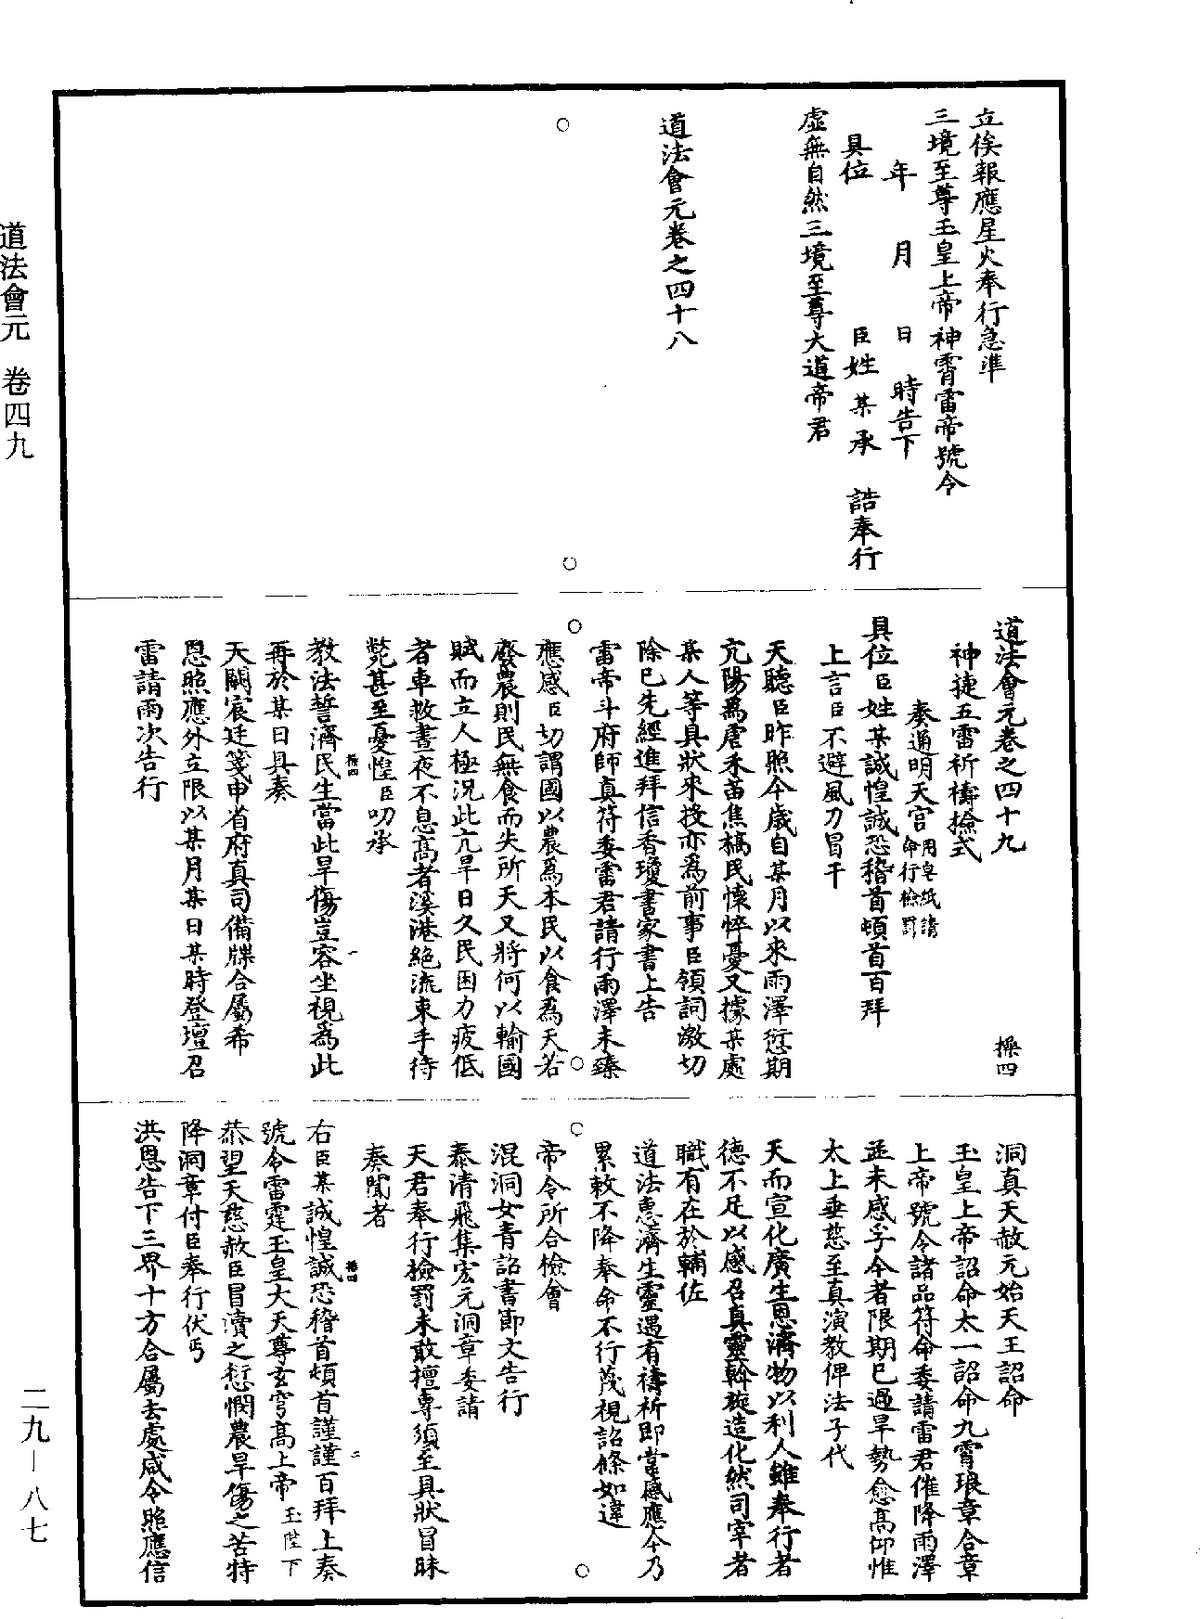 立俟報應星火奉行急準
三境至尊玉皇上帝神霄雷帝號令
年　月　日　時告下
具位　臣姓某承　誥奉行
虛無自然三境至尊大道帝君
道法會元卷之四十八
道法會元卷之四十九
神捷五雷祈禱檢式
奏通明天宮用皂紙請命行檢罰
具位臣姓某誠惶誠恐稽首頓首百拜
上言臣不避風刀冒干
天聽臣昨照今歲自某月以來雨澤愆期
亢陽為虐禾苗焦槁民懷悴憂又據某處
某人等具狀來投亦為前事臣領詞激切
除已先經進拜信香瓊書家書上告
雷帝斗府師真符委雷君請行雨澤未臻
應感臣切謂國以農為本民以食為天若
廢農則民無食而失所天又將何以輸國
賦而立人極況此亢旱日久民困力疲低
者車救晝夜不息高者溪港絕流束手待
斃甚至憂惶臣叨承
教法誓濟民生當此旱傷豈容坐視為此
再於某日具奏
天闕宸廷箋申省府真司備牒合屬希
恩照應外立限以某月某日某時登壇召
雷請雨次告行
洞真天赦元始天王詔命
玉皇上帝詔命太一詔命九霄琅章合章
上帝號令諸品符命委請雷君催降雨澤
並未感孚今者限期已過旱勢愈高仰惟
太上垂慈至真演教俾法子代
天而宣化廣生恩濟物以利人雖奉行者
德不足以感召真靈斡旋造化然司宰者
職有在於輔佐
道法惠濟生靈遇有禱祈即當感應今乃
累敕不降奉命不行蔑視詔條如違
帝令所合檢會
混洞女青詔書節文告行
泰清飛集宏元洞章委請
天君奉行檢罰未敢擅專須至具狀冒昧
奏聞者
右臣某誠惶誠恐稽首頓首謹謹百拜上奏
號令雷霆玉皇大天尊玄穹高上帝玉陛下
恭望天慈赦臣冒瀆之愆憫農旱傷之苦特
降洞章付臣奉行伏丐
洪恩告下三界十方合屬去處咸令照應信
道法會元　卷四九
二九—八七